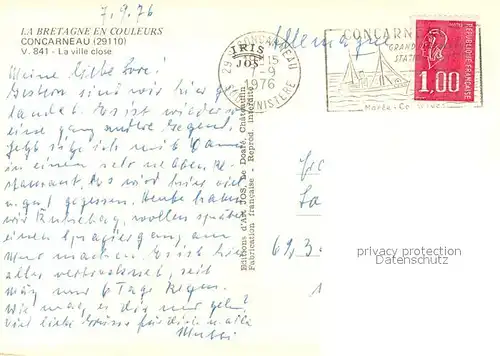 7.9.76
LA BRETAGNE EN COULEURS
CONCARNEAU (29110)
V. 841 - La ville close
Meine liebe Lore!
Gestern sind wir hier ge
landet. Es ist wieder
eine ganz andere Gegend,
Jetzt sitze ich mit
in einem sehr netten Re-
staurant. Es wird hier viel
u. gut gegessen. Heute haben
wir Ruhetag, wollen später
einen Spaziergang am
Meer machen. Es ist hier
alles vertrocknet, seit
nur 6 Tage Regen.
Wie mag es Dir nur gehn?
Viel liebe Grüsse für Dich u. alle
Mutti
Editions d'Art JOS, Le Doaré, Châteaulin
Fabrication française - Reprod. interdite
IRIS
JOS
29 CONCARNEAU
15
7-9
1976
FINISTERE
Allemagne
CONCARNEAU
GRAND
STATI
REPUBLIQUE FRANÇAISE
1,00
POSTES
69, 3
1
privacy protection
Datenschutz